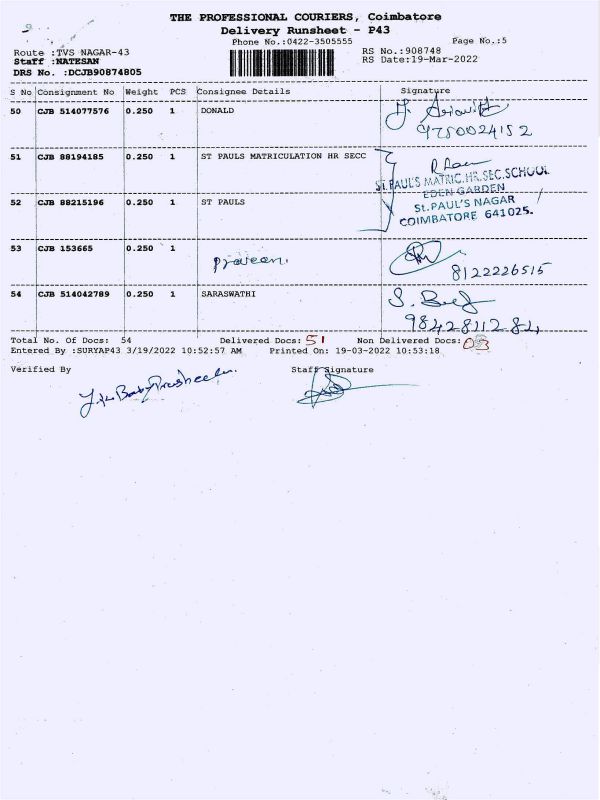 THE PROFESSIONAL COURIERS, Coimbatore
Delivery Runsheet - P43
Phone No.:0422-3505555 Page No.:5
Route :TVS NAGAR-43 RS No.:908748
Staff :NATESAN RS Date:19-Mar-2022
DRS No. :DCJB90874805
S No Consignment No Weight PCS Consignee Details Signature
50 CJB 514077576 0.250 1 DONALD
9750024152
51 CJB 88194185 0.250 1 ST PAULS MATRICULATION HR SECC
ST.PAUL'S MATRIC.HR.SEC.SCHOOL
EDEN GARDEN
52 CJB 88215196 0.250 1 ST PAULS St.PAUL'S NAGAR
COIMBATORE 641025.
53 CJB 153665 0.250 1
praveen. 8122226515
54 CJB 514042789 0.250 1 SARASWATHI
9842811284
Total No. Of Docs: 54 Delivered Docs: 51 Non Delivered Docs: 03
Entered By :SURYAP43 3/19/2022 10:52:57 AM Printed On: 19-03-2022 10:53:18
Verified By Staff Signature